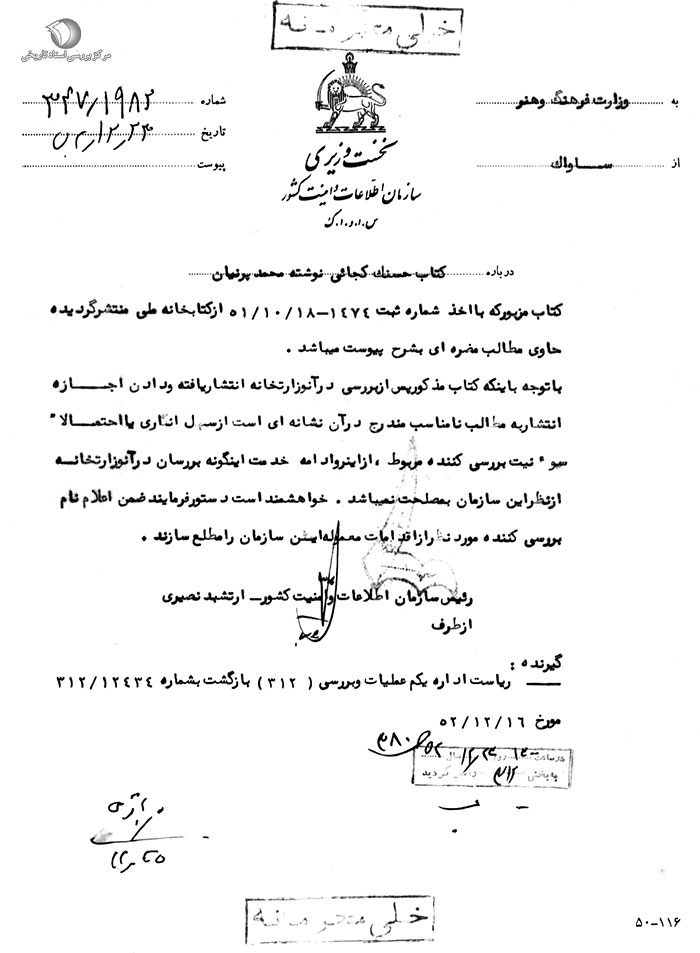 خیلی محرمانه
مرکز بررسی اسناد تاریخی
به وزارت فرهنگ و هنر
از ســاواک
نخست وزیری
سازمان اطلاعات و امنیت کشور
س.ا.و.ا.ک
شماره ۳۴۷/۱۹۸۲
تاریخ
پیوست
درباره کتاب حسنک کجائی نوشته محمد پرنیان
کتاب مزبور که با اخذ شماره ثبت ۱۴۷۴-۵۱/۱۰/۱۸ از کتابخانه ملی منتشر گردیده
حاوی مطالب مضره ای بشرح پیوست میباشد .
با توجه باینکه کتاب مذکور پس از بررسی در آنوزارتخانه انتشار یافته و دادن اجــازه
انتشار به مطالب نامناسب مندرج در آن نشانه ای است از سهل انگاری یا احتمالا"
سوء نیت بررسی کننده مربوط ، از اینرو ادامه خدمت اینگونه بررسان در آنوزارتخانــه
از نظر این سازمان بمصلحت نمیباشد . خواهشمند است دستور فرمایند ضمن اعلام نام
بررسی کننده مورد نظر از اقدامات معموله این سازمان را مطلع سازند .
رئیس سازمان اطلاعات و امنیت کشور ــ ارتشبد نصیری
از طرف
گیرنده :
ریاست اداره یکم عملیات و بررسی ( ۳۱۲ ) بازگشت بشماره ۳۱۲/۱۲۴۳۴
مورخ ۵۲/۱۲/۱۶
در ساعت روز سال
به بخش ۳۱۲ گردید
خیلی محرمانه
۵۰-۱۱۶